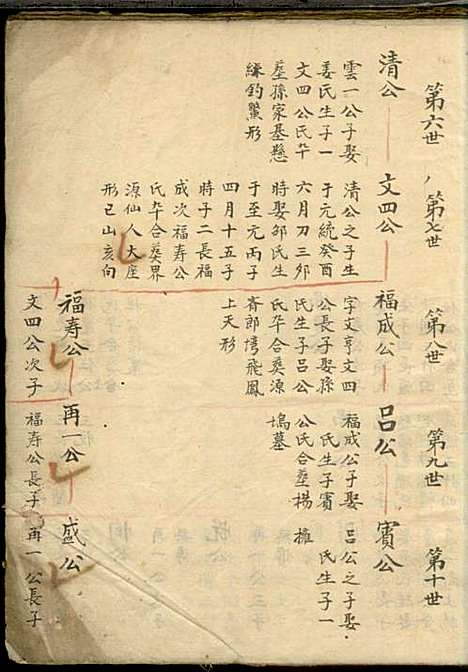 第六世
清公
雲一公子娶
姜氏生子一
文四公氏卒
塟孫家基懸
綵釣鱉形
第七世
文四公
清公之子生
于元統癸酉
六月刀三夘
時娶邹氏生
于至元丙子
四月十五子
時子二長福
成次福寿公
氏卒合葵界
源仙人大座
形己山亥向
第八世
福成公
字文亨文四
公長子娶孫
氏生子吕公
氏卒合葵源
齊郎塆飛鳳
上天形
福寿公
文四公次子
第九世
吕公
福成公子娶
氏生子賓
公氏合塟楊
塢墓
再一公
福寿公長子
第十世
賓公
吕公之子娶
氏生子一
權
盛公
再一公長子